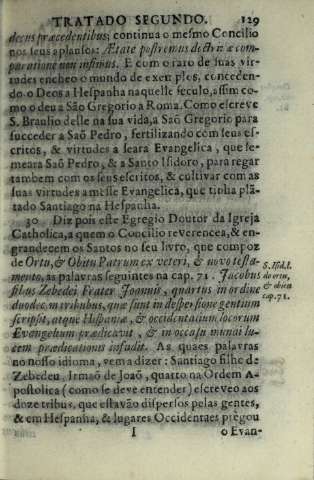 TRATADO SEGUNDO. 129
decus præcedentibus; continua o mesmo Concilio
nos seus aplausos: Ætate postremus doctrinæ com-
paratione non infimus. E com o raro de suas vir-
tudes encheo o mundo de exemplos, conceden-
do o Deos a Hespanha naquelle seculo, assim co-
mo o deu a São Gregorio a Roma. Como escreve
S. Braulio deste na sua vida, a Saõ Gregorio para
succeder a Saõ Pedro, fertilizando com seus es-
critos, & virtudes a seara Evangelica, que se-
meara Saõ Pedro, & a Santo Isidoro, para regar
tambem com os seus escritos, & cultivar com as
suas virtudes a messe Evangelica, que tinha plã-
tado Santiago na Hespanha.
30 Diz pois este Egregio Doutor da Igreja
Catholica, a quem o Concilio reverencea, & en-
grandecem os Santos no seu livro, que compoz
de Ortu, & Obitu Patrum ex veteri, & novo testa-
mento, as palavras seguintes na cap. 71. Jacobus
filius Zebedei Frater Joannis, quartus in ordine
duodecim tribubus, quæ sunt in dispersione gentium
scripsit, atque Hispaniæ, & occidentalium locorum
Evangelium prædicavit, & in occasu mundi lu-
cem prædicationis infudit. As quaes palavras
no nosso idioma, vem a dizer: Santiago filho de
Zebedeu, Irmaõ de Joaõ, quarto na Ordem A-
postolica (como se deve entender) escreveo aos
doze tribus, que estavão dispersos pelas gentes,
& em Hespanha, & lugares Occidentaes prégou
I o Evan-
S. Isid. l.
de ortu,
& obitu
cap. 71.